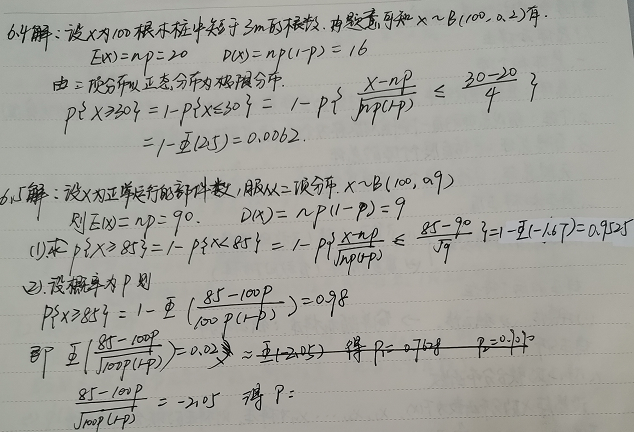 6.4解：设X为100根木桩中短于3m的根数.由题意可知X~B(100,0.2)有.
E(X)=np=20 D(X)=np(1-p)=16
由二项分布以正态分布为极限分布.
P{X≥30}=1-P{X≤30}=1-P{(X-np)/√(np(1-p)) ≤ (30-20)/4}
=1-Φ(2.5)=0.0062.
6.5解：设X为正常运行的部件数,服从二项分布.X~B(100,0.9)
则E(X)=np=90. D(X)=np(1-p)=9
(1)求P{X≥85}=1-P{X<85}=1-P{(X-np)/√(np(1-p)) ≤ (85-90)/√9}=1-Φ(-1.67)=0.9525
(2).设概率为P则
P{X≥85}=1-Φ((85-100P)/(100P(1-P)))=0.98
即 Φ((85-100P)/√(100P(1-P)))=0.02 ≈Φ(-2.05) 得P₁=0.7628
(85-100P)/√(100P(1-P)) = -2.05 得P=